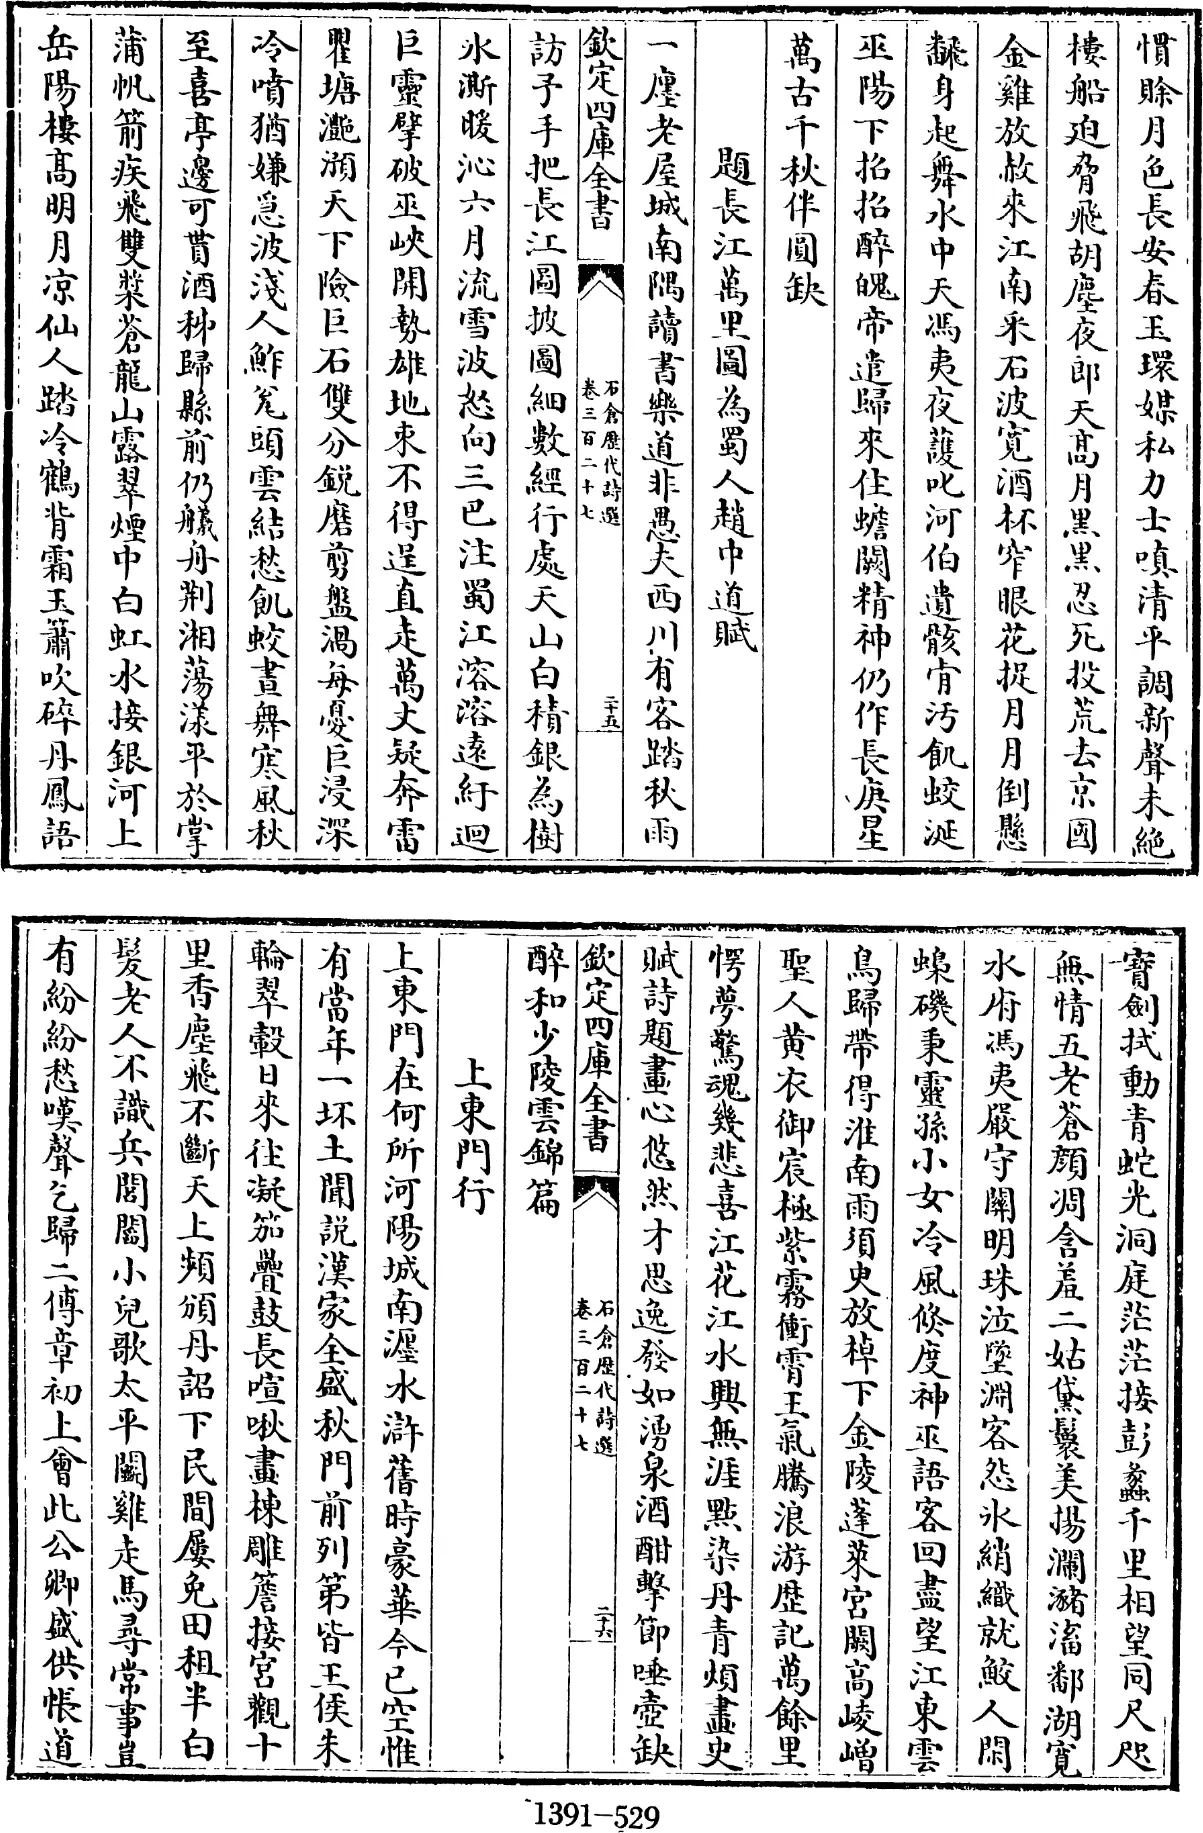 慣賒月色長安春玉環媒私力士嗔清平調新聲未絶
樓船迫脅飛胡塵夜郎天髙月黒黒忍死投荒去京國
金雞放赦來江南采石波寛酒杯窄眼花捉月月倒懸
飜身起舞水中天馮夷夜䕶叱河伯遺骸肯汚飢蛟涎
巫陽下招招醉魄帝遣歸來住蟾闕精神仍作長庚星
萬古千秋伴圓缺
題長江萬里圖為蜀人趙中道賦
一廛老屋城南隅讀書樂道非愚夫西川有客踏秋雨
欽定四庫全書
石倉歴代詩選
卷三百二十七
二十五
訪予手把長江圖披圖細數經行處天山白積銀為樹
氷澌暖沁六月流雪波怒向三巴注蜀江溶溶遠紆迴
巨靈擘破巫峽開勢雄地束不得逞直走萬丈疑奔雷
瞿塘灔澦天下險巨石雙分鋭磨剪盤渦每憂巨浸深
冷噴猶嫌急波淺人鮓瓮頭雲結愁飢蛟晝舞寒風秋
至喜亭邊可貰酒秭歸縣前仍艤舟荆湘蕩漾平於掌
蒲帆箭疾飛雙槳蒼龍山露翠煙中白虹水接銀河上
岳陽樓髙明月凉仙人踏冷鶴背霜玉簫吹碎丹鳳語
寳劍拭動青蛇光洞庭茫茫接彭蠡千里相望同尺咫
無情五老蒼顔凋含羞二姑黛鬟美揚瀾瀦滀鄱湖寛
水府馮夷嚴守關明珠泣墜淵客怨氷綃織就鮫人閑
蟂磯秉靈孫小女冷風倐度神巫語客回盡望江東雲
鳥歸帶得淮南雨須臾放棹下金陵蓬萊宫闕高崚嶒
聖人黄衣御宸極紫霧衝霄王氣騰浪游歴記萬餘里
愕夢驚魂幾悲喜江花江水興無涯點染丹青煩畫史
賦詩題畫心悠然才思逸發如湧泉酒酣擊節唾壺缺
欽定四庫全書
石倉歴代詩選
卷三百二十七
二十六
醉和少陵雲錦篇
上東門行
上東門在何所河陽城南瀍水滸舊時豪華今已空惟
有當年一坏土聞說漢家全盛秋門前列第皆王侯朱
輪翠轂日來往凝笳疊鼓長喧啾畫棟雕簷接宮觀十
里香塵飛不斷天上頻頒丹詔下民間屢免田租半白
髪老人不識兵閭閻小兒歌太平鬬雞走馬尋常事豈
有紛紛愁嘆聲乞歸二傅章初上會此公卿盛供帳道
1391-529